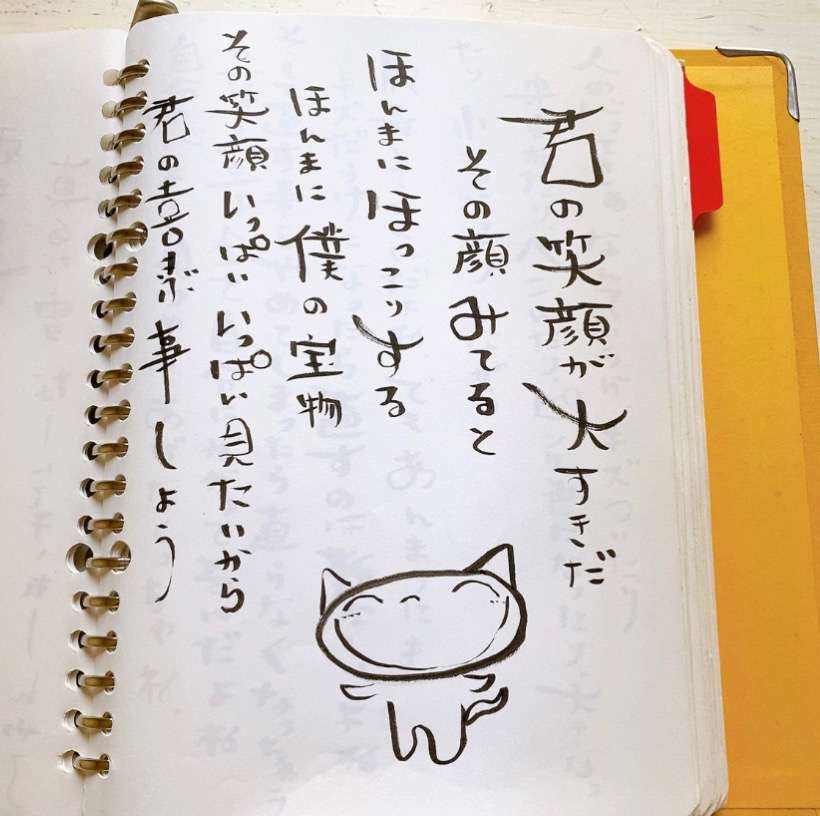 君の笑顔が大すきだ
その顔みてると
ほんまにほっこりする
ほんまに僕の宝物
その笑顔いっぱいいっぱい見たいから
君の喜ぶ事しよう